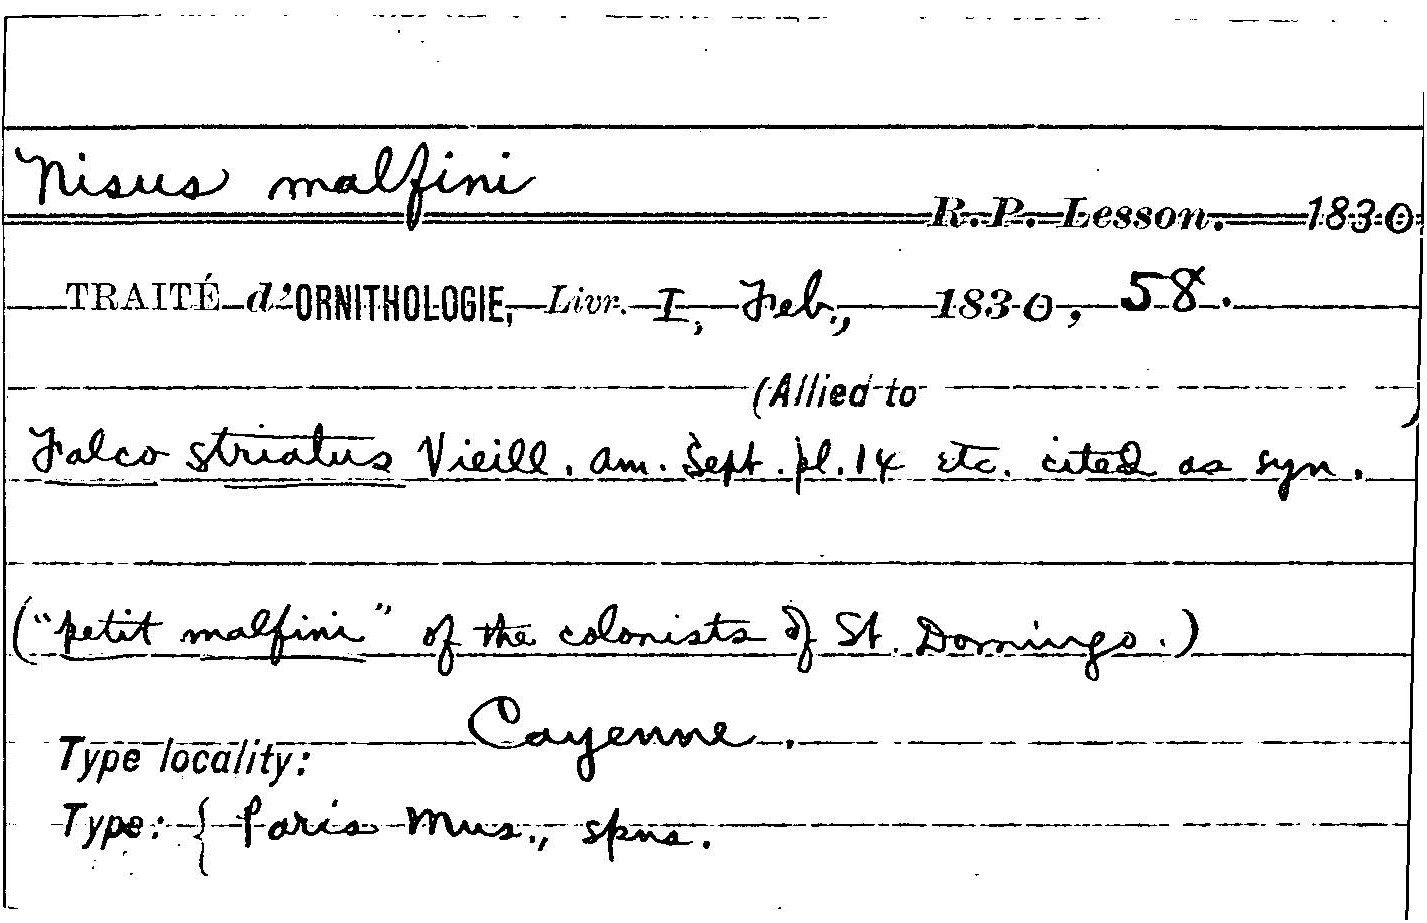 Nisus malfini
R. P. Lesson. 1830
TRAITÉ d'ORNITHOLOGIE, Livr. I, Feb., 1830, 58.
(Allied to )
Falco striatus Vieill. Am. Sept. pl. 14 etc. cited as syn.
("petit malfini" of the colonists of St. Domingo.)
Type locality: Cayenne.
Type: { Paris Mus., spns.